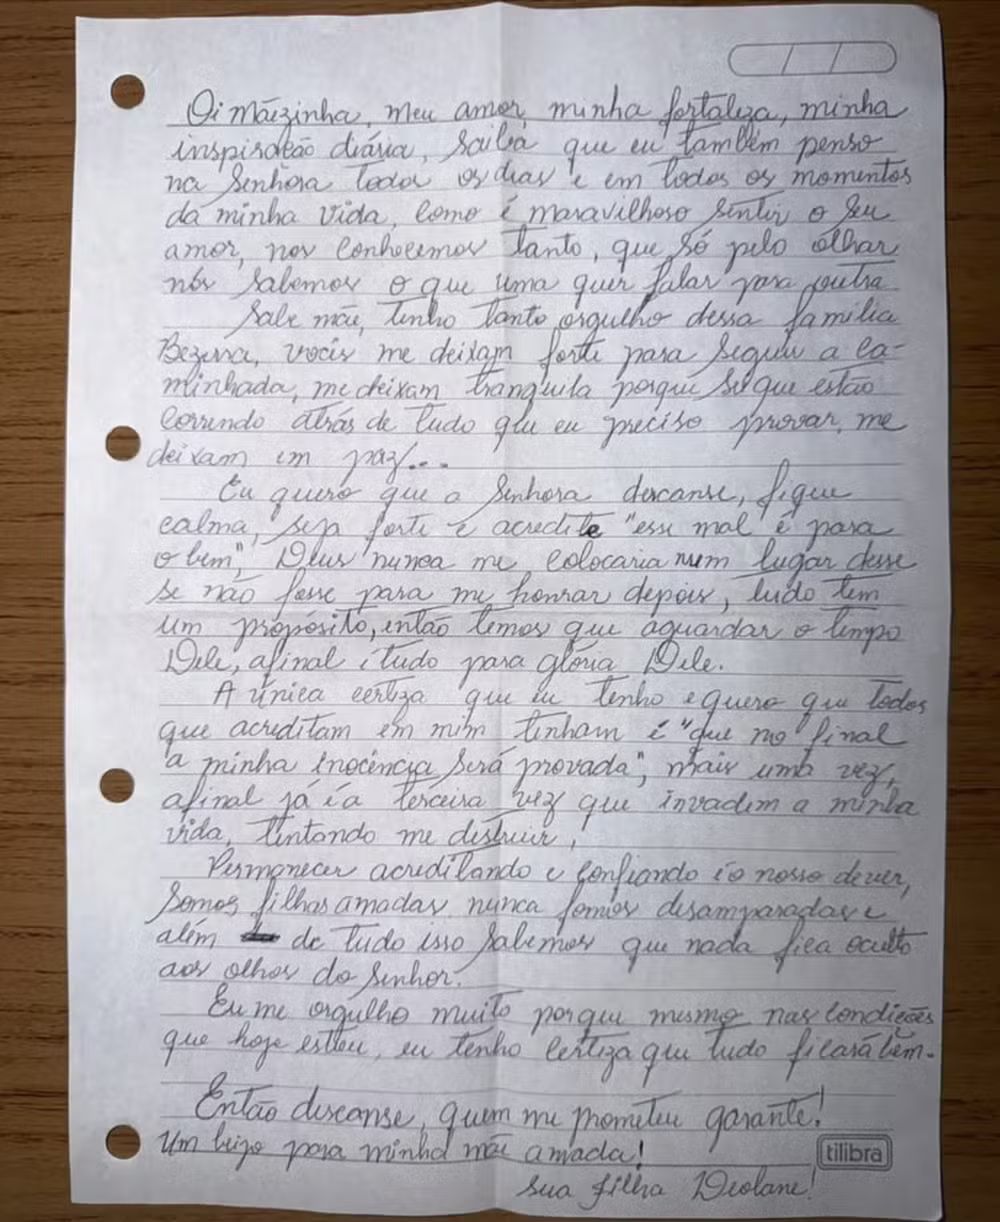 Oi mãezinha, meu amor, minha fortaleza, minha
inspiração diária, saiba que eu também penso
na Senhora todos os dias e em todos os momentos
da minha vida, como é maravilhoso sentir o seu
amor, nos conhecemos tanto, que só pelo olhar
nós sabemos o que uma quer falar para outra
Sabe mãe, tenho tanto orgulho dessa família
Bezerra, vocês me deixam forte para seguir a ca-
minhada, me deixam tranquila porque sei que estão
correndo atrás de tudo que eu preciso provar, me
deixam em paz...
Eu quero que a Senhora descanse, fique
calma, seja forte e acredite "esse mal é para
o bem", Deus nunca me colocaria num lugar desse
se não fosse para me honrar depois, tudo tem
um propósito, então temos que aguardar o tempo
Dele, afinal é tudo para glória Dele.
A única certeza que eu tenho e quero que todos
que acreditam em mim tenham é "que no final
a minha inocência será provada", mais uma vez,
afinal já é a terceira vez que invadem a minha
vida, tentando me destruir!
Permanecer acreditando e confiando é o nosso dever,
somos filhas amadas, nunca fomos desamparadas e
além de tudo isso sabemos que nada fica oculto
aos olhos do Senhor.
Eu me orgulho muito porque mesmo nas condições
que hoje estou, eu tenho certeza que tudo ficará bem.
Então descanse, quem me prometeu garante!
Um beijo para minha mãe amada!
tilibra
Sua filha Deolane!